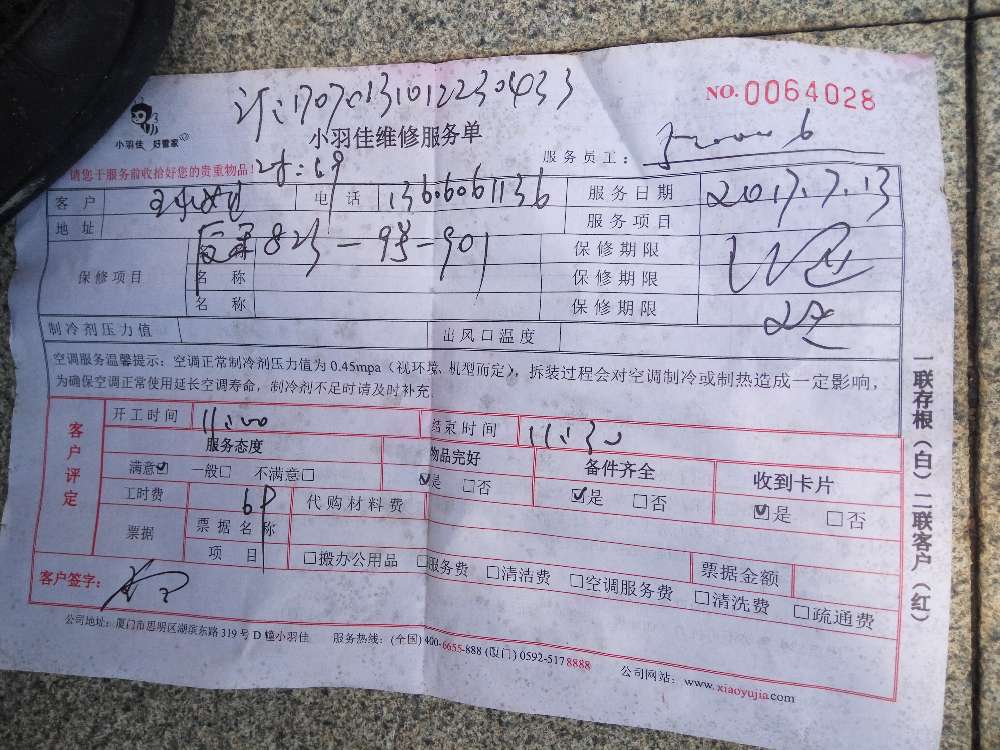 订:170701310122304033
NO.0064028
小羽佳 好管家
小羽佳维修服务单
服务员工:
请您于服务前收拾好您的贵重物品!
客户 电话 13606061136 服务日期 2017.7.13
地址 823-9号-901 服务项目
保修项目 名称 保修期限
名称 保修期限
名称 保修期限
制冷剂压力值 出风口温度
空调服务温馨提示:空调正常制冷剂压力值为 0.45mpa(视环境、机型而定),拆装过程会对空调制冷或制热造成一定影响,
为确保空调正常使用延长空调寿命,制冷剂不足时请及时补充.
客户评定
开工时间 11:00 结束时间 11:30
服务态度 物品完好 备件齐全 收到卡片
满意☑ 一般□ 不满意□ ☑是 □否 ☑是 □否 ☑是 □否
工时费 代购材料费
票据 票据名称
项目 □搬办公用品 □服务费 □清洁费 □空调服务费 □清洗费 □疏通费
票据金额
客户签字:
公司地址:厦门市思明区湖滨东路 319 号 D 幢小羽佳 服务热线:(全国)400-6655-888 (厦门) 0592-5178888 公司网站:www.xiaoyujia.com
一联存根(白)二联客户(红)